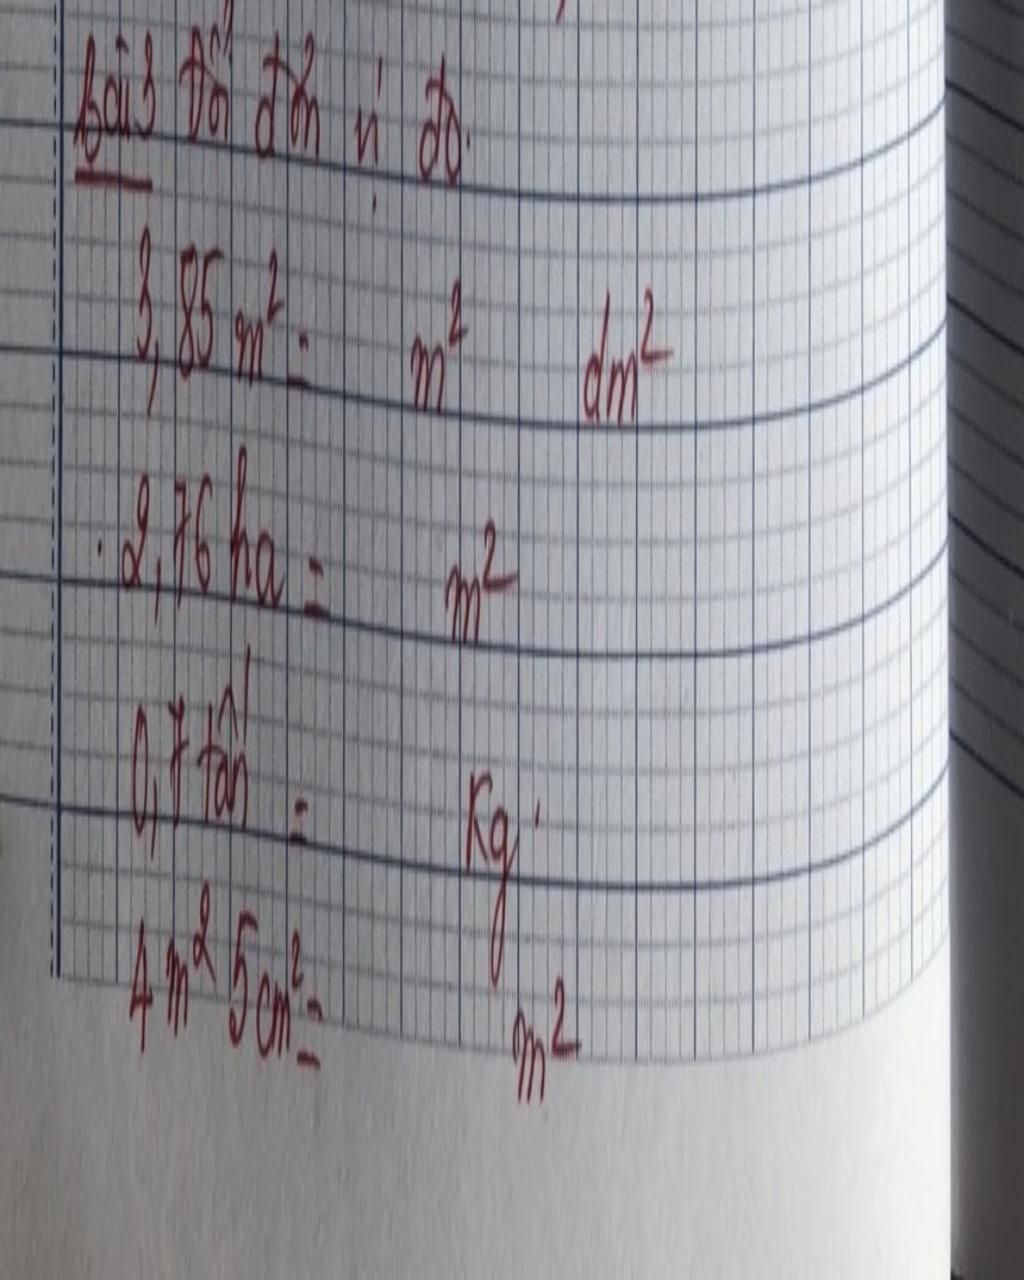 Bài 3 Đổi đơn vị đo.
3,85 m² = m² dm²
2,76 ha = m²
0,7 tấn = Kg
4 m² 5 cm² = m²